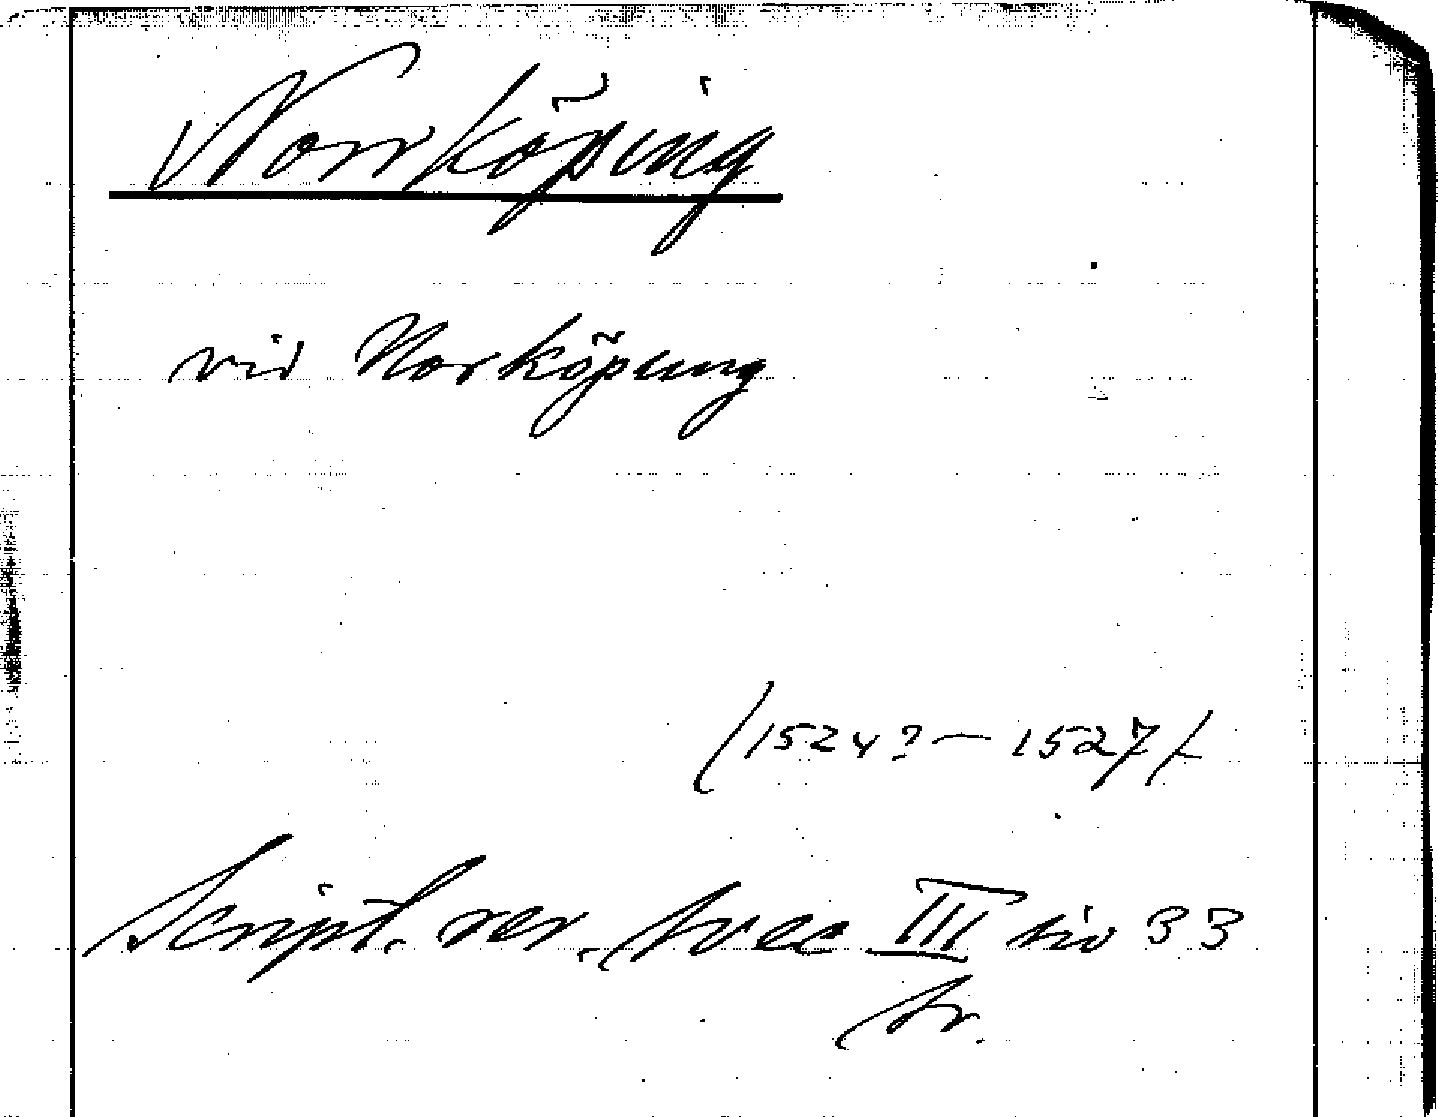 Norrköping
vid Norköpung
(1524?–1527)
Script. rer. svec III sid 33
tr.